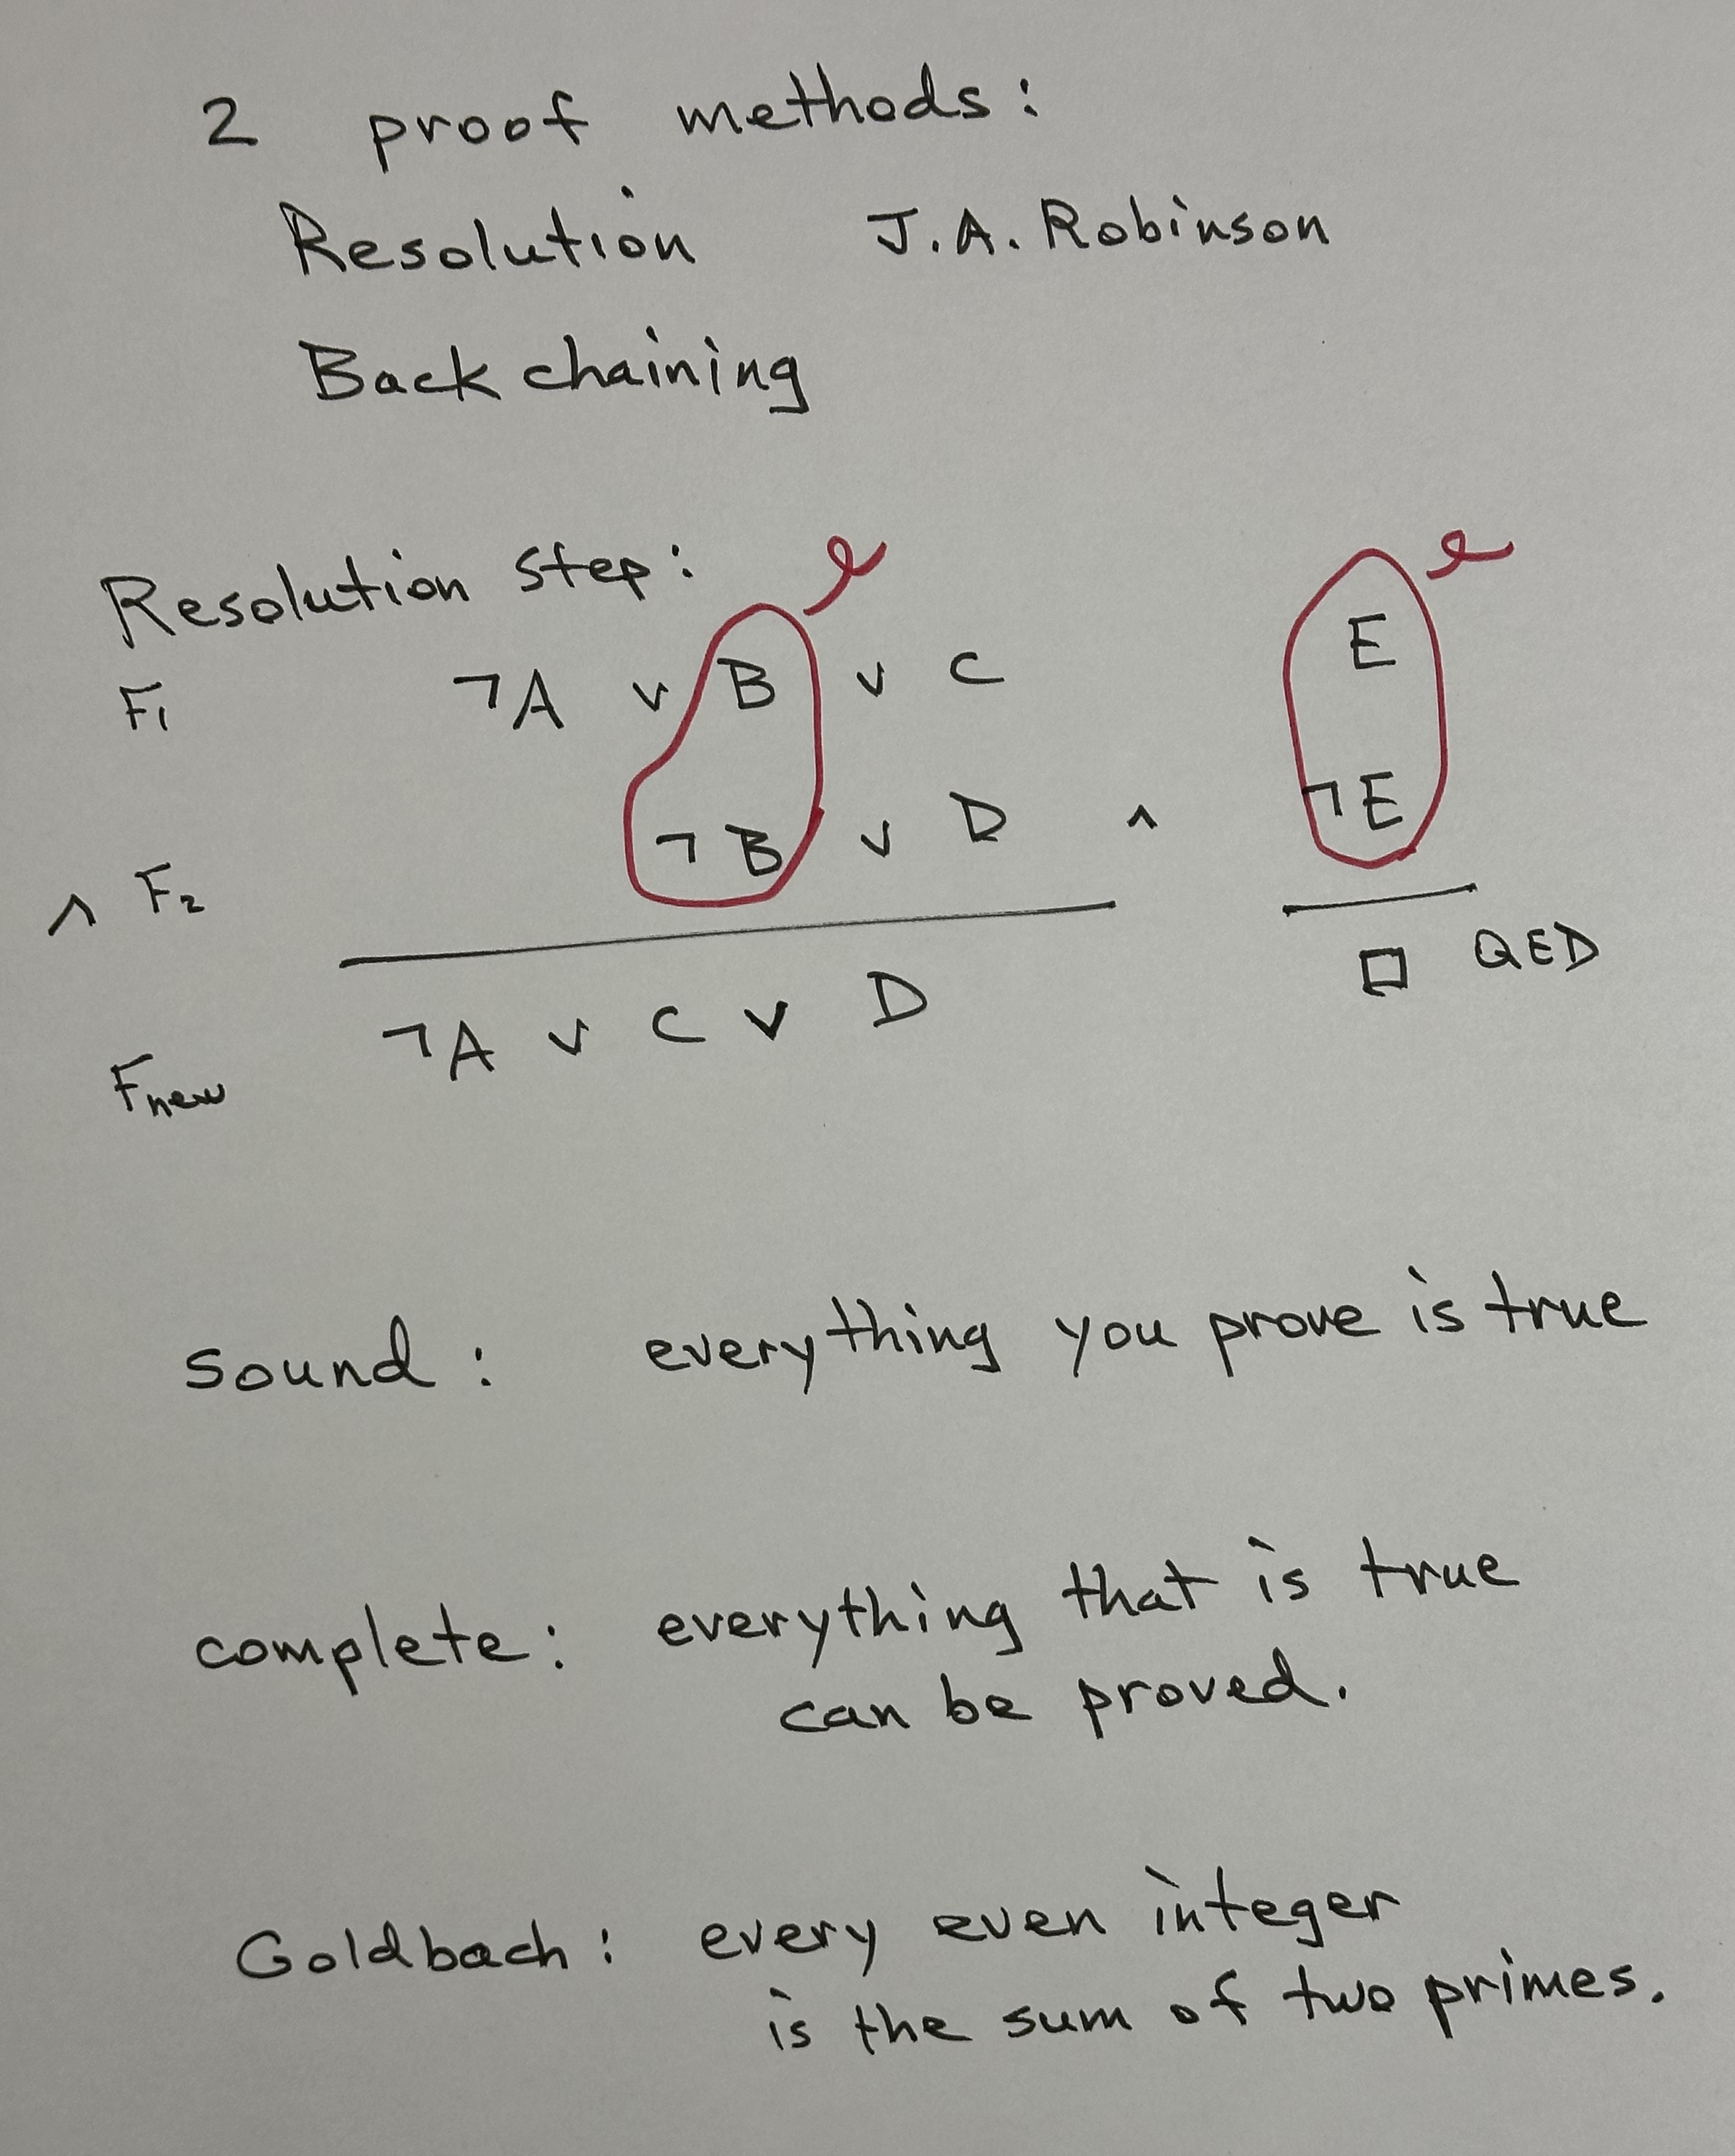 2 proof methods:
Resolution J.A. Robinson
Backchaining
Resolution step:
F1 ¬A ∨ B ∨ C E
∧ F2 ¬B ∨ D ∧ ¬E
Fnew ¬A ∨ C ∨ D □ QED
sound: everything you prove is true
complete: everything that is true
can be proved.
Goldbach: every even integer
is the sum of two primes.